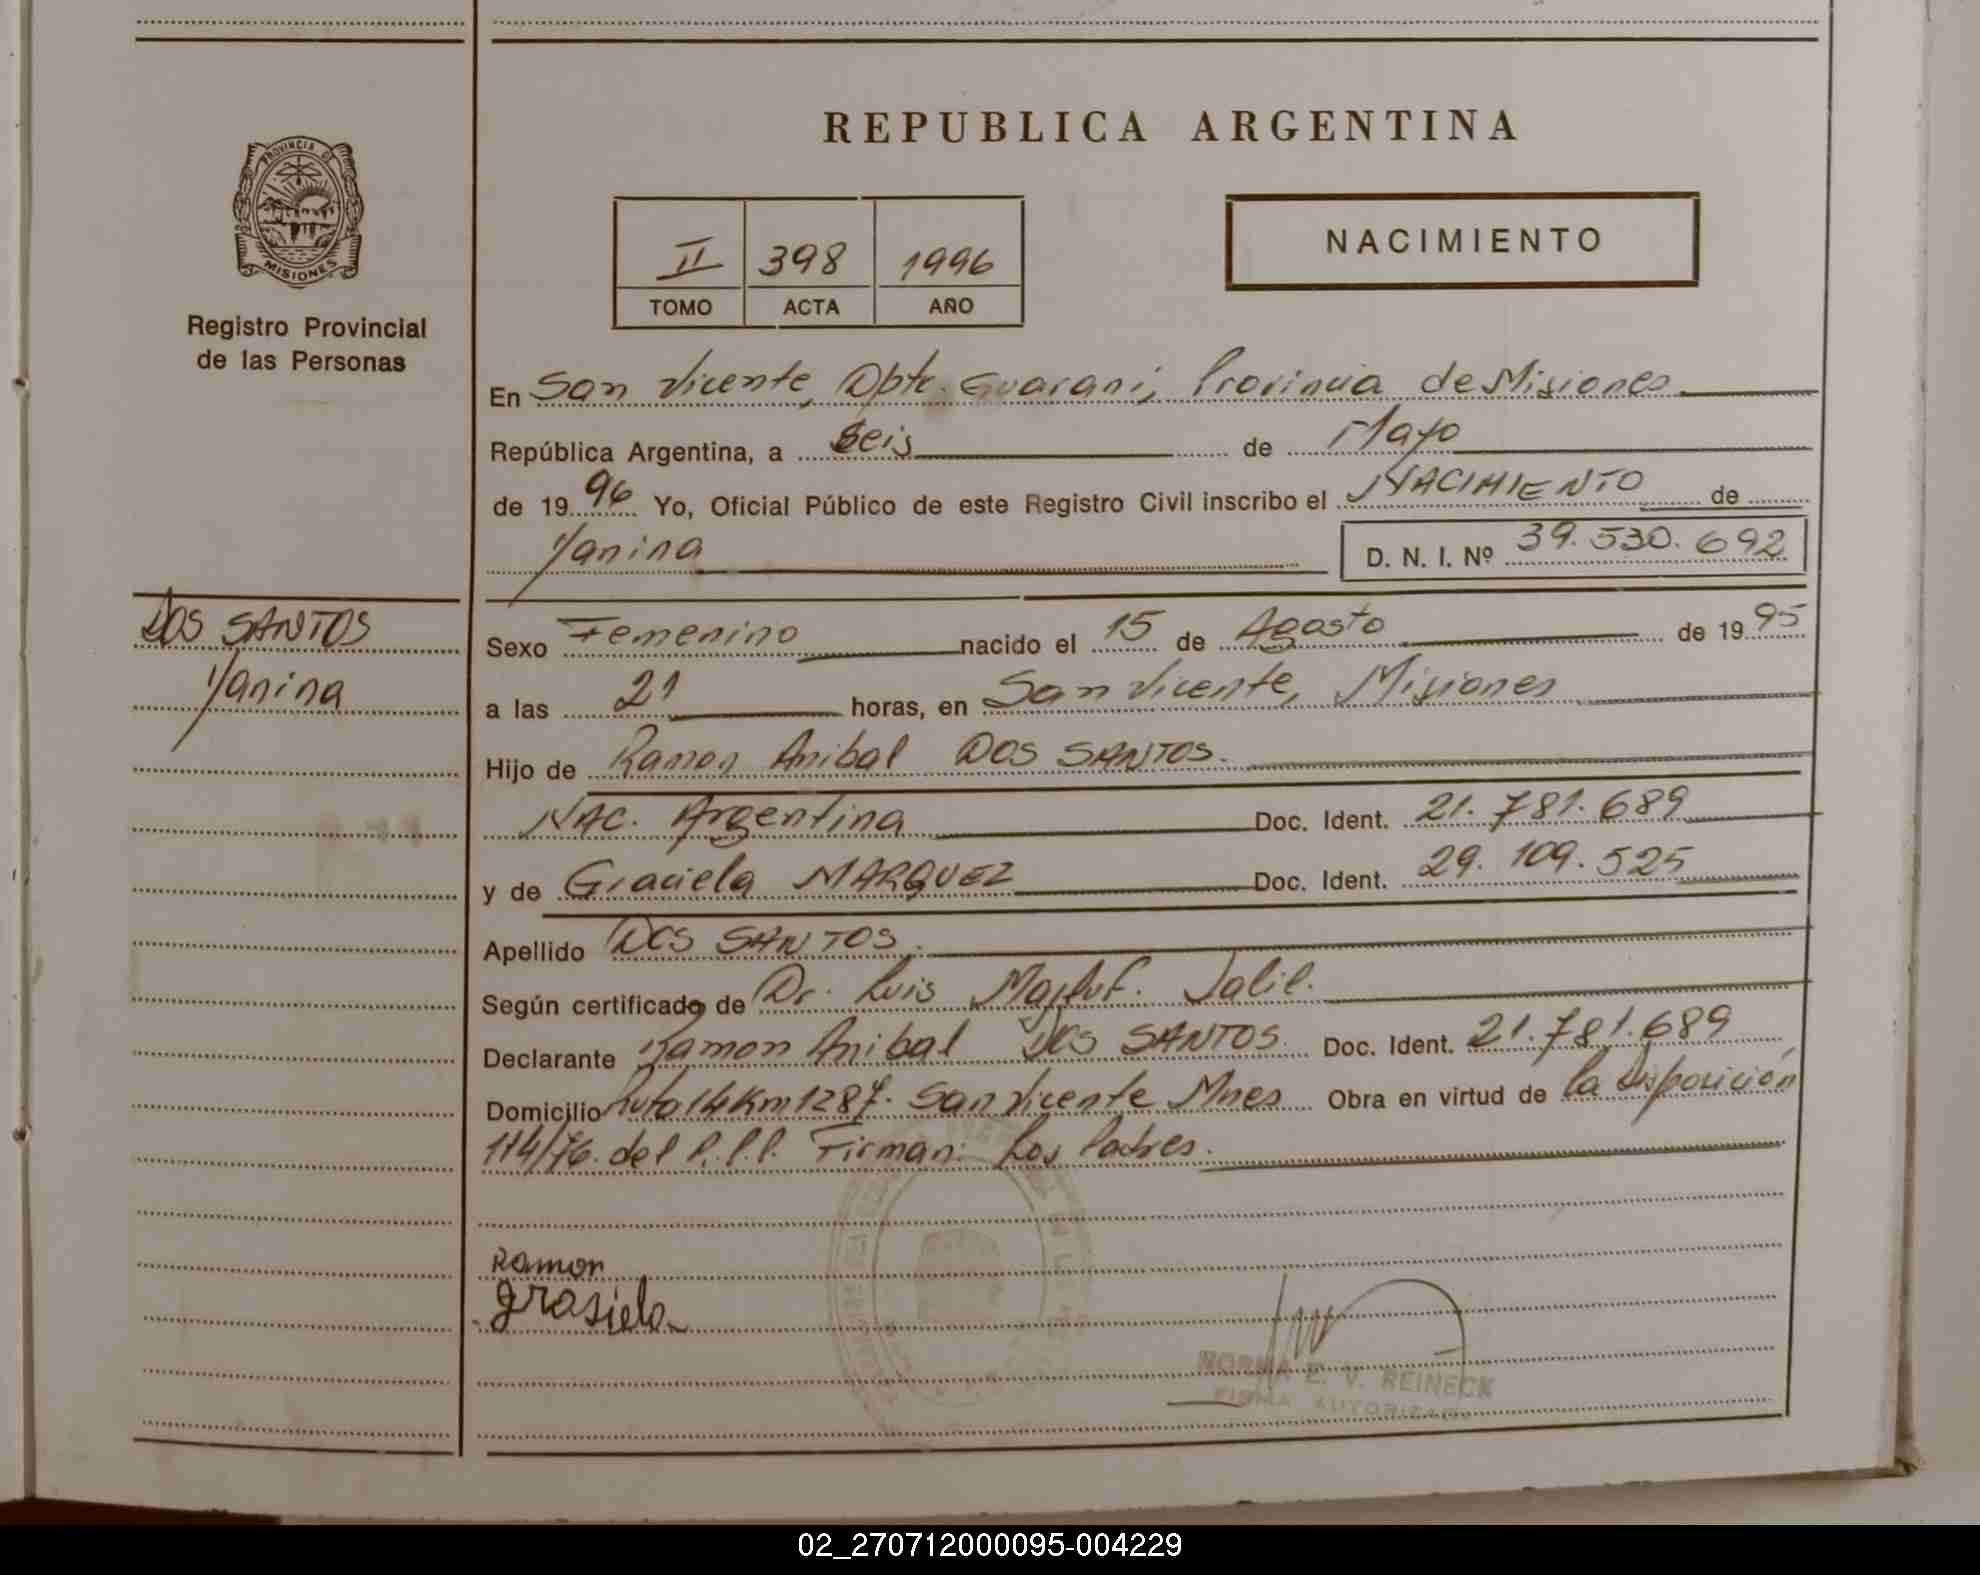 REPUBLICA ARGENTINA
PROVINCIA DE
MISIONES
Registro Provincial
de las Personas
II 398 1996
TOMO ACTA AÑO
NACIMIENTO
En San Vicente, Dpto. Guarani, Provincia de Misiones
República Argentina, a Seis de Mayo
de 1996 Yo, Oficial Público de este Registro Civil inscribo el NACIMIENTO de
Yanina D. N. I. Nº 39.530.692
DOS SANTOS
Yanina
Sexo Femenino nacido el 15 de Agosto de 1995
a las 21 horas, en San Vicente, Misiones
Hijo de Ramon Anibal DOS SANTOS.
NAC. Argentina Doc. Ident. 21.781.689
y de Graciela MARQUEZ Doc. Ident. 29.109.525
Apellido DOS SANTOS.
Según certificado de Dr. Luis Jalil.
Declarante Ramon Anibal DOS SANTOS Doc. Ident. 21.781.689
Domicilio Ruta 14 Km 1287. San Vicente Mnes Obra en virtud de la disposición
114/76. del R.P.P. Firman: Los Padres.
Ramon
grasiela
NORMA E. V. REINECK
FIRMA AUTORIZADA
02_270712000095-004229